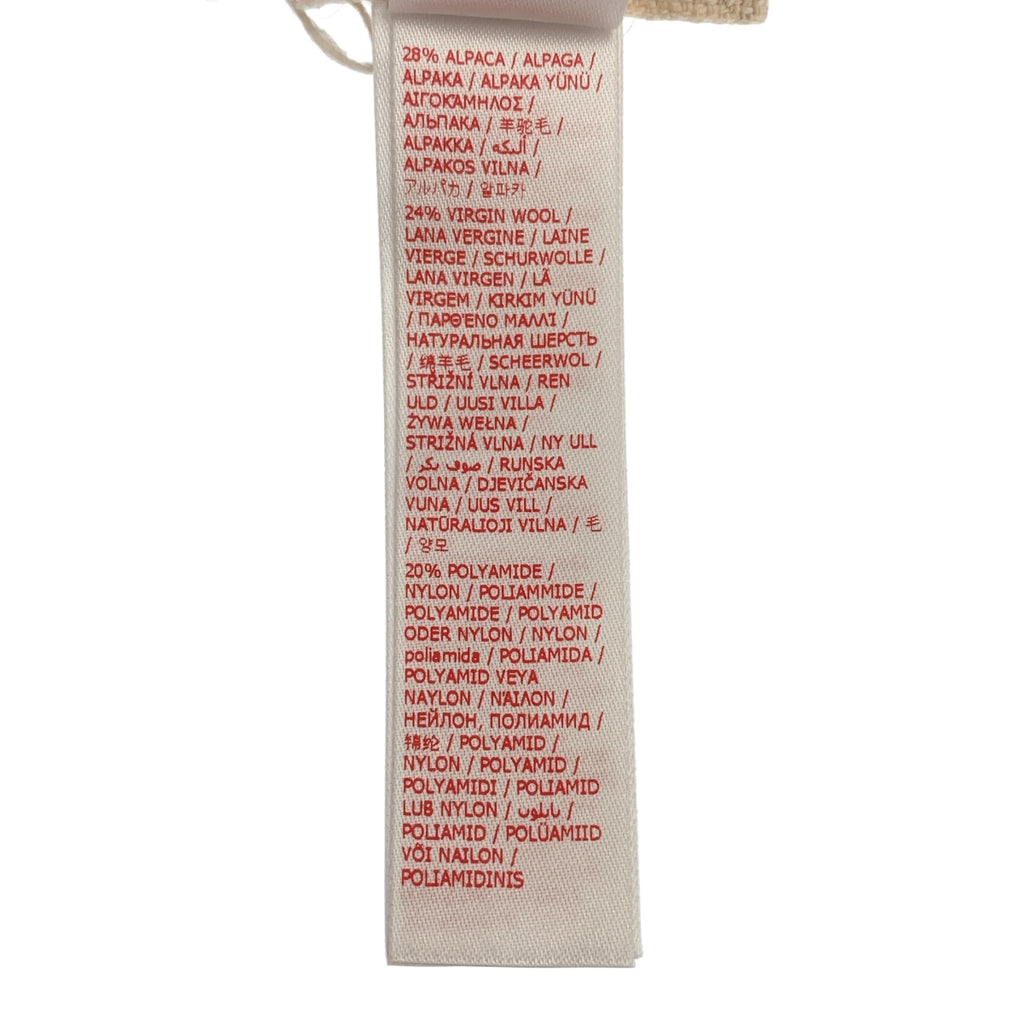 28% ALPACA / ALPAGA /
ALPAKA / ALPAKA YÜNÜ /
ΑΙΓΟΚΆΜΗΛΟΣ /
АЛЬПАКА / 羊驼毛 /
ALPAKKA / ألبكه /
ALPAKOS VILNA /
アルパカ / 알파카
24% VIRGIN WOOL /
LANA VERGINE / LAINE
VIERGE / SCHURWOLLE /
LANA VIRGEN / LÃ
VIRGEM / KIRKIM YÜNÜ
/ ΠΑΡΘΈΝΟ ΜΑΛΛΊ /
НАТУРАЛЬНАЯ ШЕРСТЬ
/ 绵羊毛 / SCHEERWOL /
STŘIŽNÍ VLNA / REN
ULD / UUSI VILLA /
ŻYWA WEŁNA /
STRIŽNÁ VLNA / NY ULL
/ صوف بكر / RUNSKA
VOLNA / DJEVIČANSKA
VUNA / UUS VILL /
NATŪRALIOJI VILNA / 毛
/ 양모
20% POLYAMIDE /
NYLON / POLIAMMIDE /
POLYAMIDE / POLYAMID
ODER NYLON / NYLON /
poliamida / POLIAMIDA /
POLYAMID VEYA
NAYLON / ΝΆΙΛΟΝ /
НЕЙЛОН, ПОЛИАМИД /
锦纶 / POLYAMID /
NYLON / POLYAMID /
POLYAMIDI / POLIAMID
LUB NYLON / نايلون /
POLIAMID / POLÜAMIID
VÕI NAILON /
POLIAMIDINIS